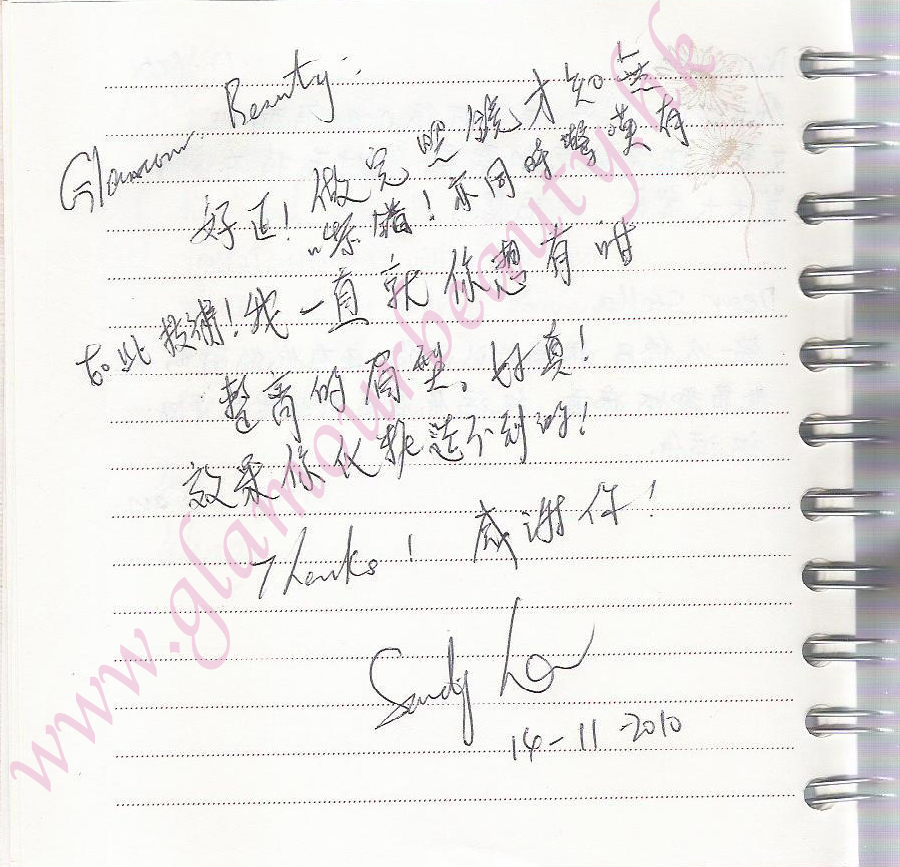 Glamour Beauty:
好正! 做完照鏡才知無
"茶錯! 亦同時驚嘆有
如此技術! 我一直就你想有咁
整齊的眉型。好真!
效果你仪 不到的!
Thanks! 感謝你!
Sandy Lo
14-11-2010
www.glamourbeauty.hk